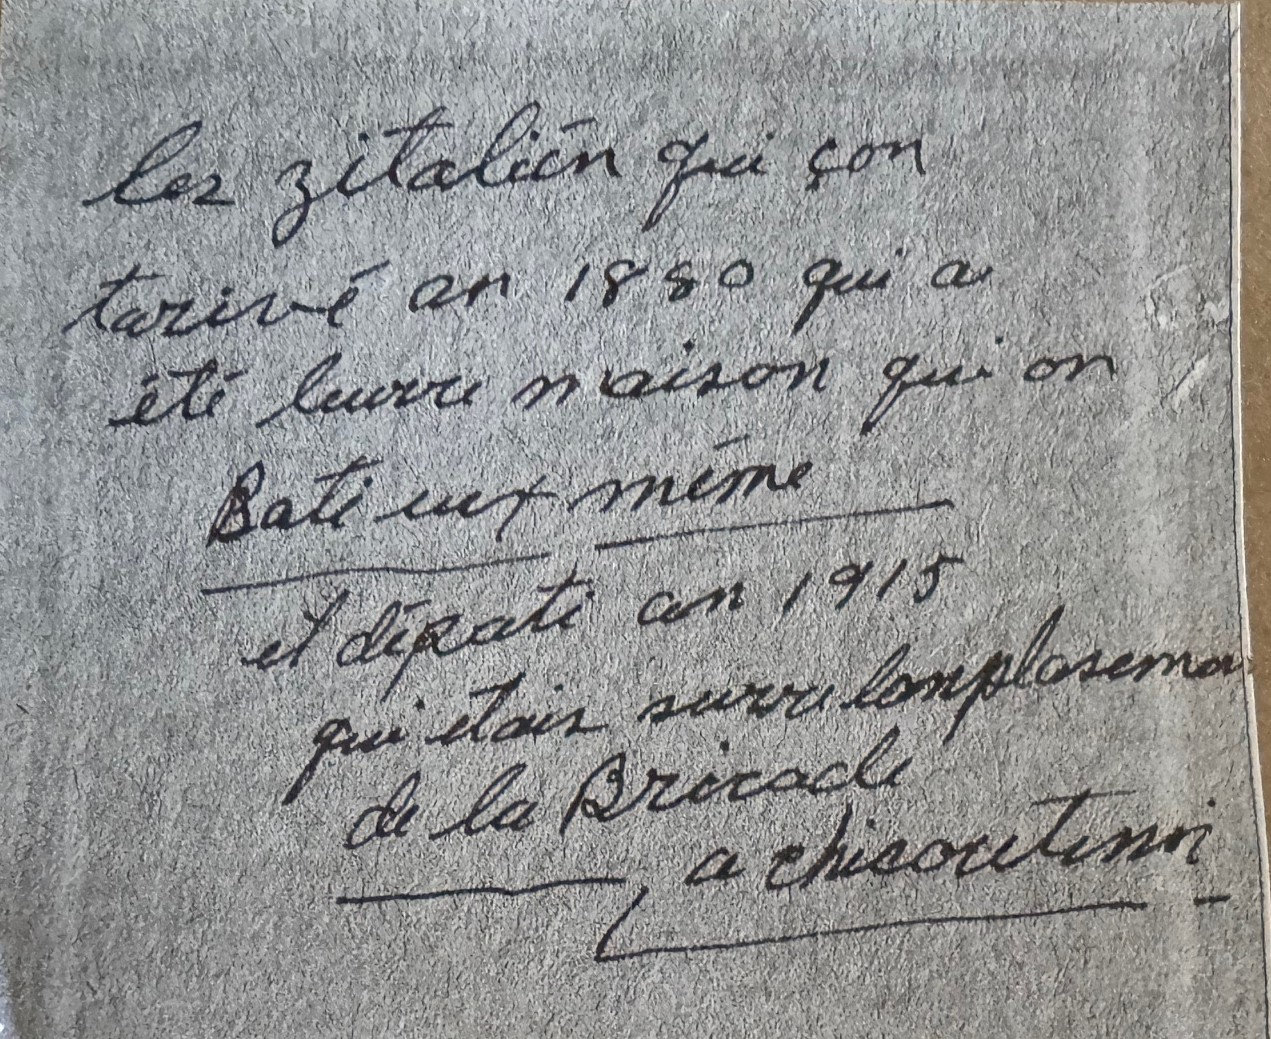 les zitalien qui çon
tarivé an 1880 qui a
été leurre maison qui on
Bati eux mème
et dépati an 1915
qui étais surre lomplasemen
de la Bricade
a chicoutimi